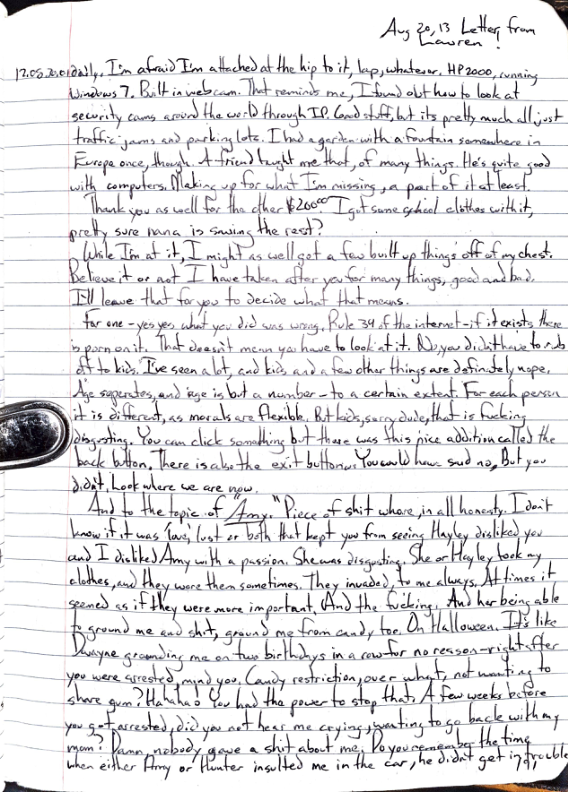 Aug 20, 13 Letter from
Lauren!
daily. I'm afraid I'm attached at the hip to it, lap, whatever. HP2000, running
Windows 7. Built in webcam. That reminds me, I found out how to look at
security cams around the world through IP. Good stuff, but its pretty much all just
traffic jams and parking lots. I had a garden with a fountain somewhere in
Europe once, though. A friend taught me that, of many things. He's quite good
with computers. Making up for what I'm missing, a part of it at least.
Thank you as well for the other $200⁰⁰ I got some school clothes with it,
pretty sure nana is saving the rest?
While I'm at it, I might as well get a few built up things off of my chest.
Believe it or not I have taken after you for many things, good and bad.
I'll leave that for you to decide what that means.
For one - yes yes, what you did was wrong. Rule 34 of the internet - if it exists there
is porn on it. That doesn't mean you have to look at it. No, you didn't have to rub
off to kids. I've seen a lot, and kids and a few other things are definitely nope.
Age seperates, and age is but a number - to a certain extent. For each person
it is different, as morals are flexible. But kids, sorry dude, that is fucking
disgusting. You can click something but there was this nice addition called the
back button. There is also the exit button. You could have said no, But you
didn't. Look where we are now.
And to the topic of "Amy." Piece of shit whore, in all honesty. I don't
know if it was 'love,' lust or both that kept you from seeing Hayley disliked you
and I disliked Amy with a passion. She was disgusting. She or Hayley took my
clothes, and they wore them sometimes. They invaded, to me always. At times it
seemed as if they were more important. And the fucking. And her being able
to ground me and shit, ground me from candy too. On Halloween. It's like
Dwayne grounding me on two birthdays in a row for no reason - right after
you were arrested, mind you. Candy restriction, over what, not wanting to
share gum? Hahaha! You had the power to stop that. A few weeks before
you got arrested, did you not hear me crying, wanting to go back with my
mom? Damn, nobody gave a shit about me. Do you remember the time
when either Amy or Hunter insulted me in the car, he didn't get in trouble